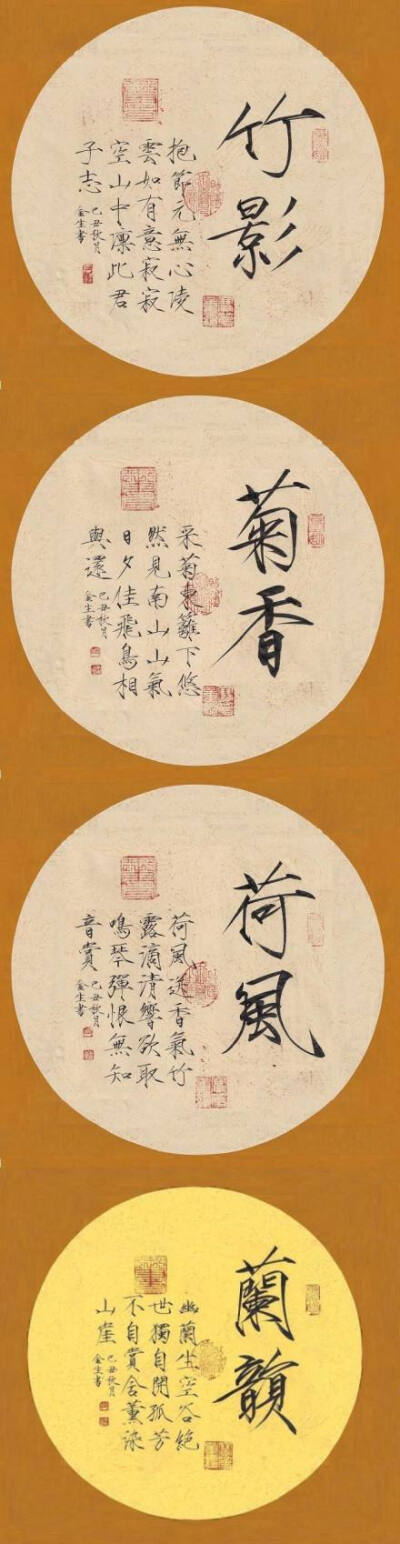 竹影
抱節元無心陵
雲如有意寂寂
空山中凜此君
子志
己丑秋月
金生書
菊香
采菊東籬下悠
然見南山山氣
日夕佳飛鳥相
與還
己丑秋月
金生書
荷風
荷風送香氣竹
露滴清響欲取
鳴琴彈恨無知
音賞
己丑秋月
金生書
蘭韻
幽蘭生空谷絕
世獨自開孤芳
不自賞含薰染
山崖
己丑秋月
金生書